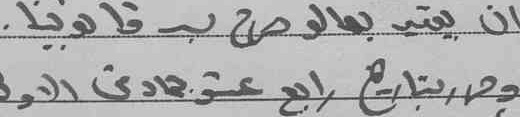 ان يعتبر بعالو صرح به قانونيا.
وحرر بتاريخ رابع عشر جمادى الاولى